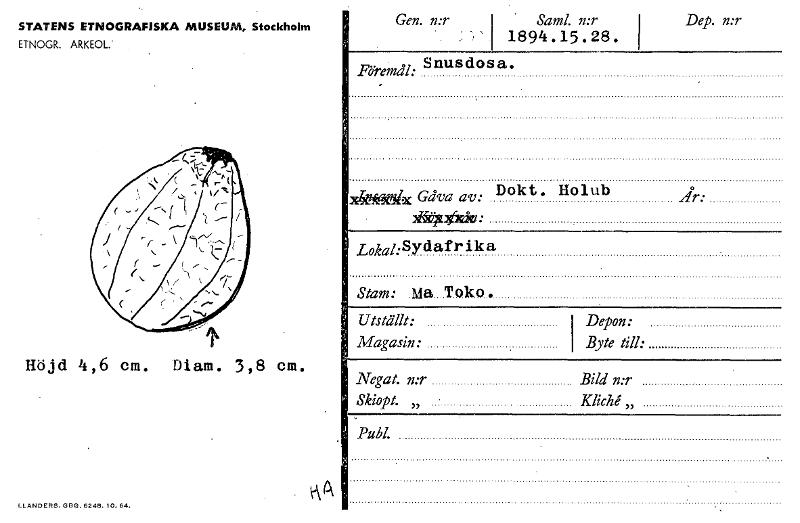 STATENS ETNOGRAFISKA MUSEUM, Stockholm
ETNOGR. ARKEOL.
Höjd 4,6 cm. Diam. 3,8 cm.
HA
LLANDERS. GBG. 6248. 10. 64.
Gen. n:r Saml. n:r Dep. n:r
1894.15.28.
Föremål: Snusdosa.
Insaml. Gåva av: Dokt. Holub År:
Köp från:
Lokal: Sydafrika
Stam: Ma Toko.
Utställt: Depon:
Magasin: Byte till:
Negat. n:r Bild n:r
Skiopt. „ Kliché „
Publ.